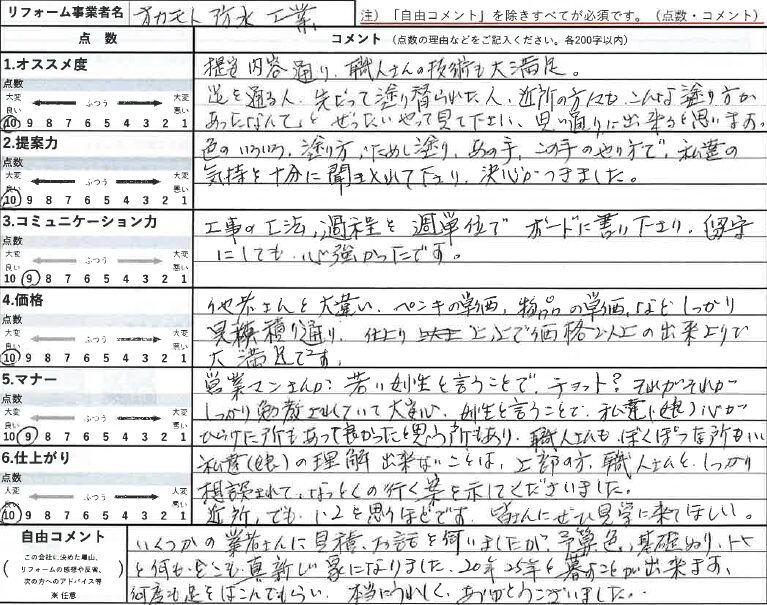 リフォーム事業者名 オカモト防水工業
注)「自由コメント」を除きすべてが必須です。(点数・コメント)
点 数 コメント(点数の理由などをご記入ください。各200字以内)
1.オススメ度
点数
大変良い ふつう 大変悪い
10 9 8 7 6 5 4 3 2 1
提案内容通り、職人さんの技術も大満足。
道を通る人、先だって塗り替られた人、近所の方々も、こんな塗り方が
あったなんて、と ぜったいやって見て下さい、思い通りに出来ると思います。
2.提案力
点数
大変良い ふつう 大変悪い
10 9 8 7 6 5 4 3 2 1
色のいろいろ、塗り方、ためし塗り あの手、この手のやり方で、私達の
気持を十分に聞き入れて下さり、決心がつきました。
3.コミュニケーション力
点数
大変良い ふつう 大変悪い
10 9 8 7 6 5 4 3 2 1
工事の工法、過程を 週単位で ボードに書い下さり、留守
にしても、心強かったです。
4.価格
点数
大変良い ふつう 大変悪い
10 9 8 7 6 5 4 3 2 1
他者さんと大違い、ペンキの単価、物品の単価、などしっかり
見積積り通り、仕上り 上々で価格以上の出来上りで
大満足です。
5.マナー
点数
大変良い ふつう 大変悪い
10 9 8 7 6 5 4 3 2 1
営業マンさんが、若い女性と言うことで、チョット?それがそれが
しっかり勉教されていて大安心、女性と言うことで、私達(娘)心が
ひらけた所もあって良かったと思う所もあり、職人さんも、ぼくぼつな所もいい
6.仕上がり
点数
大変良い ふつう 大変悪い
10 9 8 7 6 5 4 3 2 1
私達(娘)の理解出来ないことは、上部の方、職人さんと、しっかり
相談されて、なっとくの行く案を示してくださいました。
近所、でも、1・2を思うほどです。皆さんにぜひ見学に来てほしい。
自由コメント
(この会社に決めた理由、リフォームの感想や反省、次の方へのアドバイス等)
※ 任意
いくつかの業者さんに見積、お話を伺いましたが、予算色、基礎ぬり、
何もかもどこも、真新しい家になりました。20年25年と暮すことが出来ます、
何度も足をはこんでもらい、本当にうれしく、ありがとうございました‥